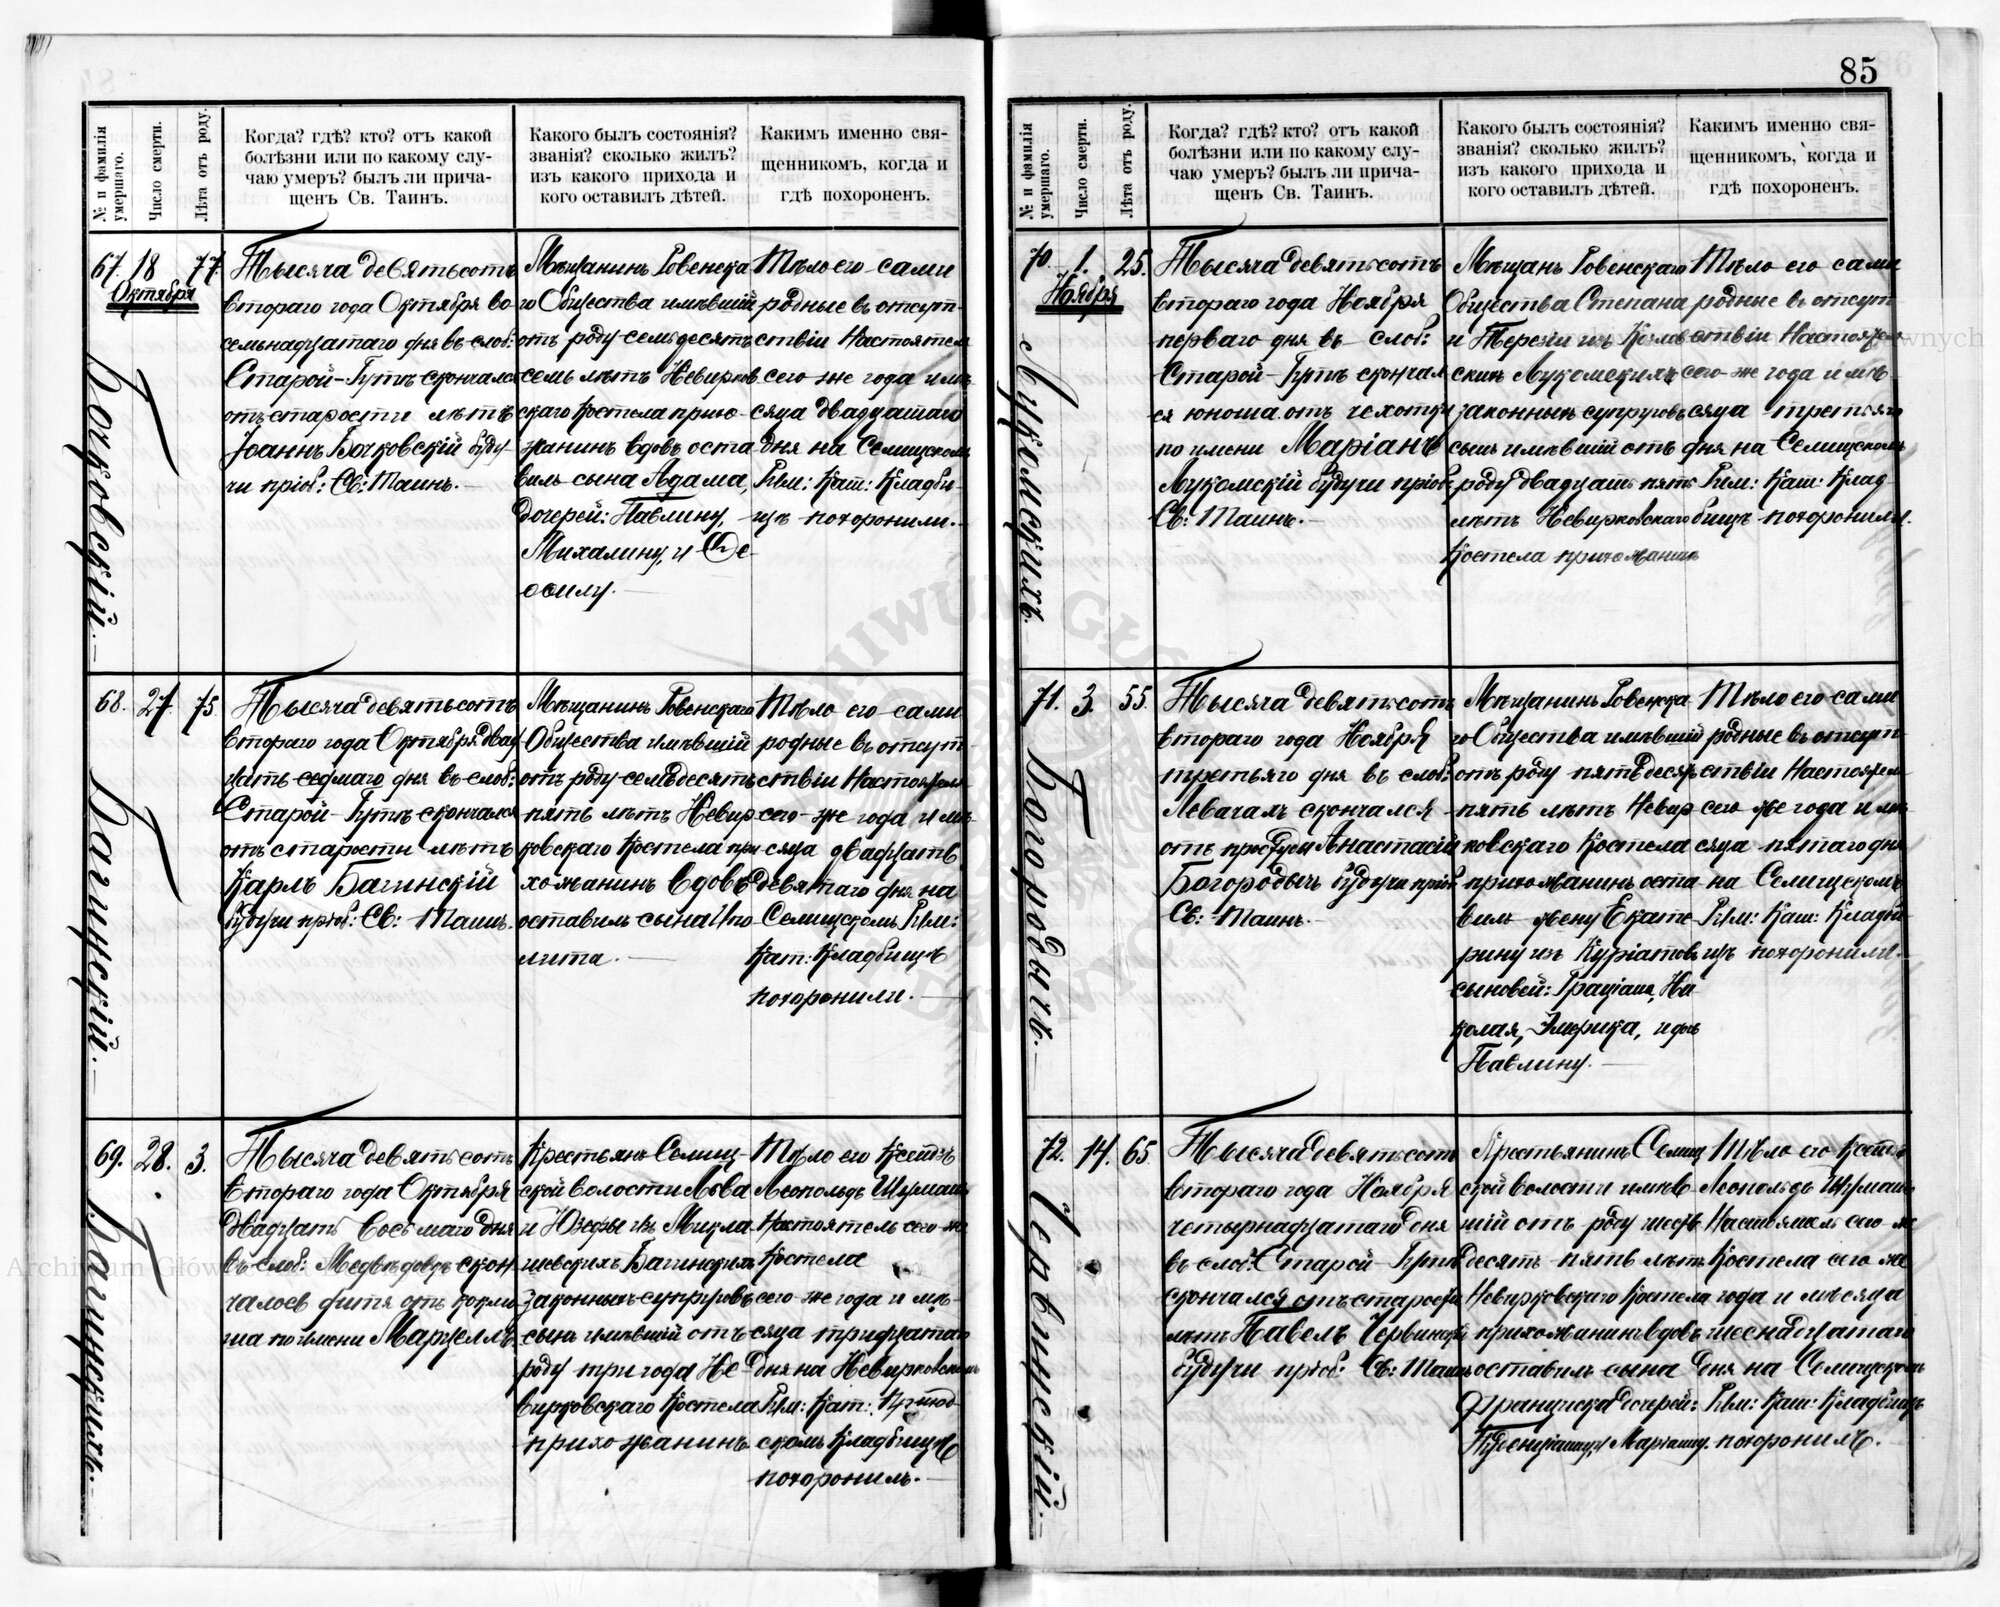 85
№ и фамилія умершаго.
Число смерти.
Лѣта отъ роду.
Когда? гдѣ? кто? отъ какой
болѣзни или по какому слу-
чаю умеръ? былъ ли прича-
щенъ Св. Таинъ.
Какого былъ состоянія?
званія? сколько жилъ?
изъ какого прихода и
кого оставилъ дѣтей.
Какимъ именно свя-
щенникомъ, когда и
гдѣ похороненъ.
67.
Бочковскій.
18
Октября
77.
Тысяча девятьсотъ
втораго года Октября во
семьнадцатаго дня въ слоб:
Старой-Гутѣ скончался
отъ старости лѣтъ
Іоаннъ Бочковскій буду
чи пріоб: Св: Таинъ.
Мѣщанинъ Ровенска
го Общества имѣвшій
отъ роду семьдесятъ
семь лѣтъ Невирков
скаго Костела прихо-
жанинъ вдовъ оста
вилъ сына Адама,
дочерей: Павлину,
Михалину, и Фе-
осилу.
Тѣло его сами
родные въ отсут-
ствіи Настоятеля
сего-же года и мѣ-
сяца двадцатаго
дня на Селищскомъ
Рим: Кат: Кладби-
щѣ похоронили.
68.
Багинскій.
27.
75.
Тысяча девятьсотъ
втораго года Октября двад
цать седмаго дня въ слоб:
Старой-Гутѣ скончался
отъ старости лѣтъ
Карлъ Багинскій
будучи пріоб: Св: Таинъ.
Мѣщанинъ Ровенскаго
Общества имѣвшій
отъ роду семьдесятъ
пять лѣтъ Невир
ковскаго Костела при
хожанинъ вдовъ
оставилъ сына Ипо
лита.
Тѣло его сами
родные въ отсут-
ствіи Настоятеля
сего-же года и мѣ-
сяца двадцать
девятаго дня на
Селищскомъ Рим:
Кат: Кладбищѣ
похоронили.
69.
Багинскихъ.
28.
3.
Тысяча девятьсотъ
втораго года Октября
двадцать восьмаго дня
въ слоб: скон
чалось дитя отъ коклю
ша по имени Марцеллъ.
Крестьянъ Селищ-
ской волости Льва
и Юзефы изъ Микла
шевскихъ Багинскихъ
законныхъ супруговъ
сынъ имѣвшій отъ
роду три года Не
вирковскаго Костела
прихожанинъ.
Тѣло его Ксендзъ
Леопольдъ Шуманъ
Настоятель сего-же
Костела
сего-же года и мѣ-
сяца тридцатаго
дня на Невирковскомъ
Рим: Кат:
скомъ Кладбищѣ
похоронилъ.
№ и фамилія умершаго.
Число смерти.
Лѣта отъ роду.
Когда? гдѣ? кто? отъ какой
болѣзни или по какому слу-
чаю умеръ? былъ ли прича-
щенъ Св. Таинъ.
Какого былъ состоянія?
званія? сколько жилъ?
изъ какого прихода и
кого оставилъ дѣтей.
Какимъ именно свя-
щенникомъ, когда и
гдѣ похороненъ.
70.
Лукомскихъ.
1.
Ноября
25.
Тысяча девятьсотъ
втораго года Ноября
перваго дня въ слоб:
Старой-Гутѣ скончал
ся юноша отъ чехотки
по имени Маріанъ
Лукомскій будучи пріоб:
Св: Таинъ.
Мѣщанъ Ровенскаго
Общества Степана
и Терезіи изъ Козлов
скихъ Лукомскихъ
законныхъ супруговъ
сынъ имѣвшій отъ
роду двадцать пять
лѣтъ Невирковскаго
Костела прихожанинъ
Тѣло его сами
родные въ отсут-
ствіи Настоятеля
сего-же года и мѣ-
сяца третьяго
дня на Селищскомъ
Рим: Кат: Клад-
бищѣ похоронили.
71.
Богородычъ.
3.
55.
Тысяча девятьсотъ
втораго года Ноября
третьяго дня въ слоб:
Левачахъ скончался
отъ простуды Анастасій
Богородычъ будучи пріоб:
Св: Таинъ.
Мѣщанинъ Ровенска
го Общества имѣвшій
отъ роду пятьдесятъ
пять лѣтъ Невир
ковскаго Костела
прихожанинъ оста
вилъ жену Екате
рину изъ Куріатовъ
сыновей: Граціана, Ни
колая, Эмерика, и дочь
Павлину.
Тѣло его сами
родные въ отсут-
ствіи Настоятеля
сего же года и мѣ
сяца пятаго дня
на Селищскомъ
Рим: Кат: Кладби
щѣ похоронили.
72.
Червинскій.
14.
65.
Тысяча девятьсотъ
втораго года Ноября
четырнадцатаго дня
въ слоб: Старой-Гутѣ
скончался отъ старости
лѣтъ Павелъ Червинскій
будучи пріоб: Св: Таинъ
Крестьянинъ Селищ
ской волости имѣв
шій отъ роду шесть
десять пять лѣтъ
Невирковскаго Костела
прихожанинъ вдовъ
оставилъ сына
Франциска дочерей:
Марianну.
Тѣло его Ксендзъ
Леопольдъ Шуманъ
Настоятель сего-же
Костела сего же
года и мѣсяца
шеснадцатаго
дня на Селищскомъ
Рим: Кат: Кладбищѣ
похоронилъ.